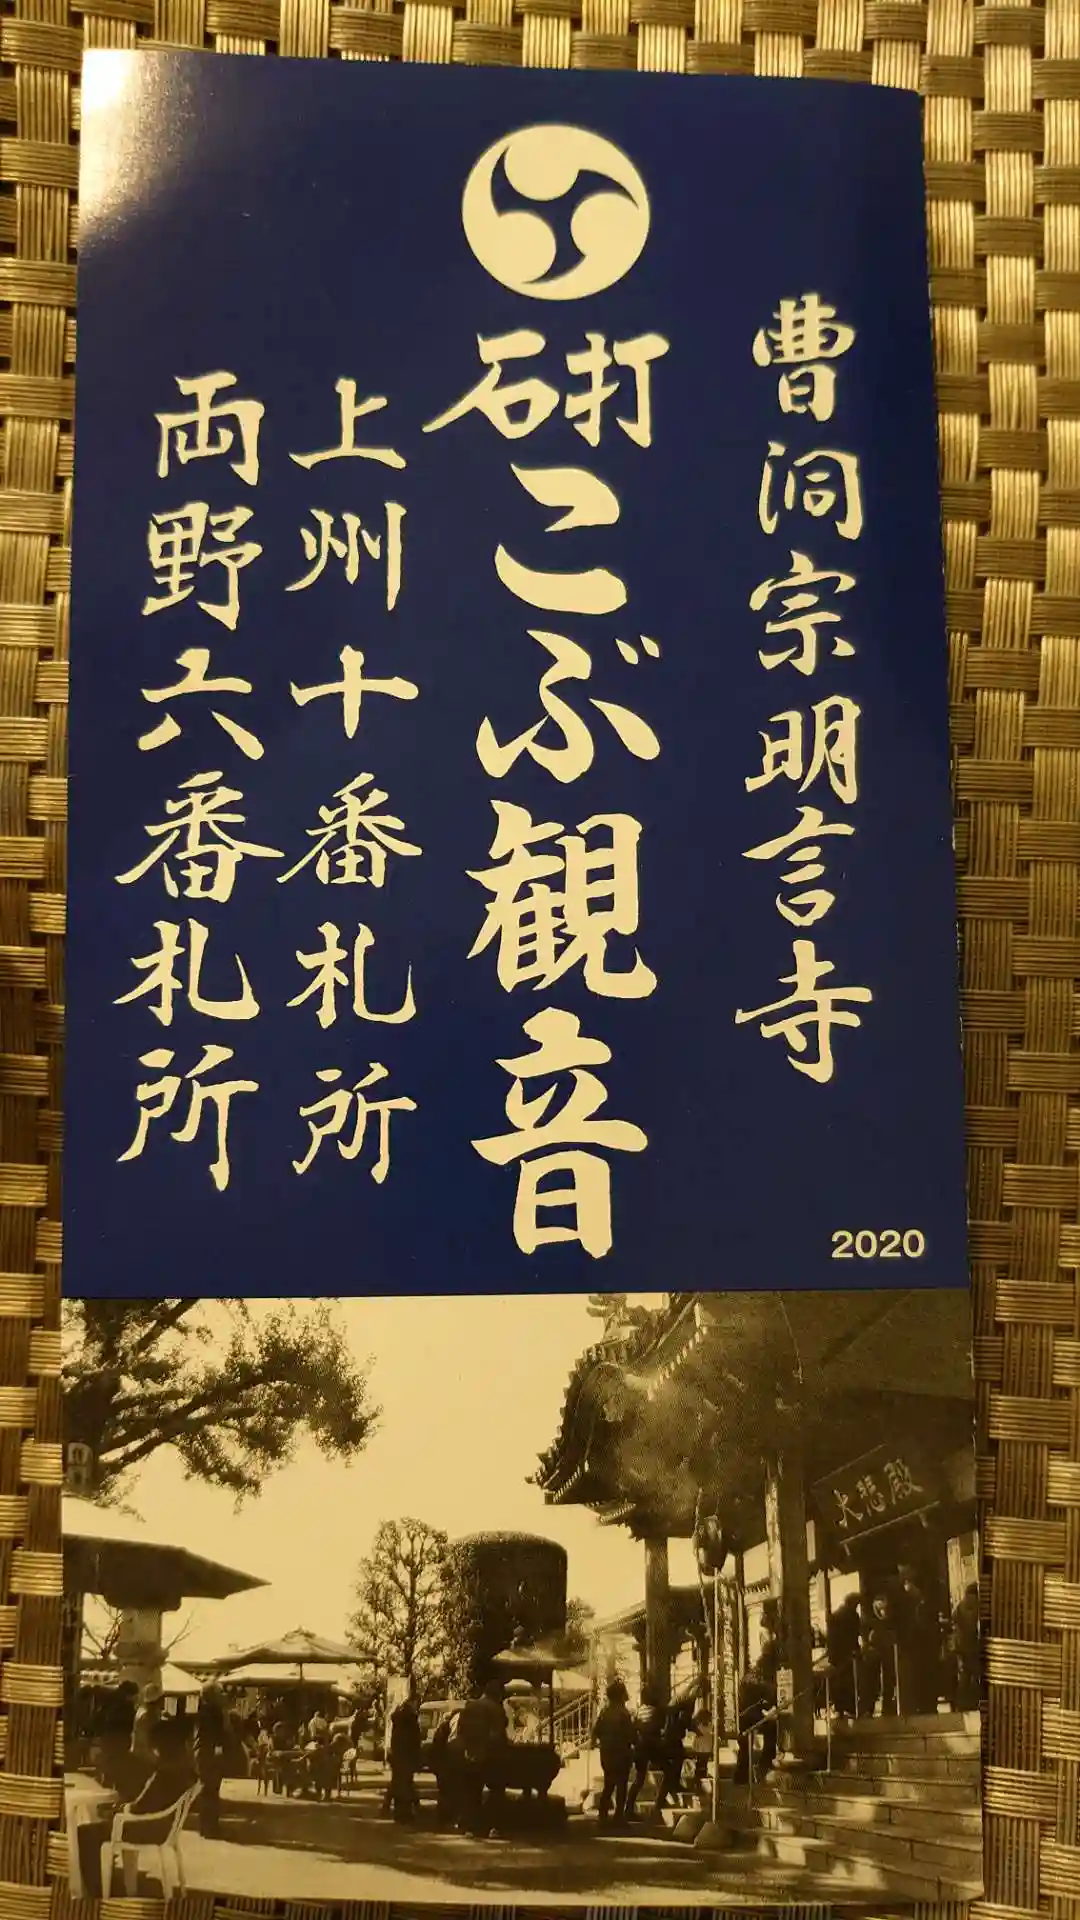 曹洞宗明言寺
砳打こぶ観音
上州十番札所
両野六番札所
2020
大悲殿